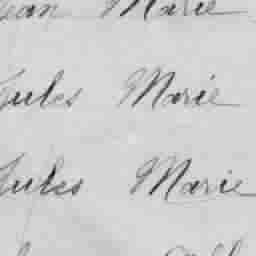 Jean Marie
Jules Marie
Jules Marie